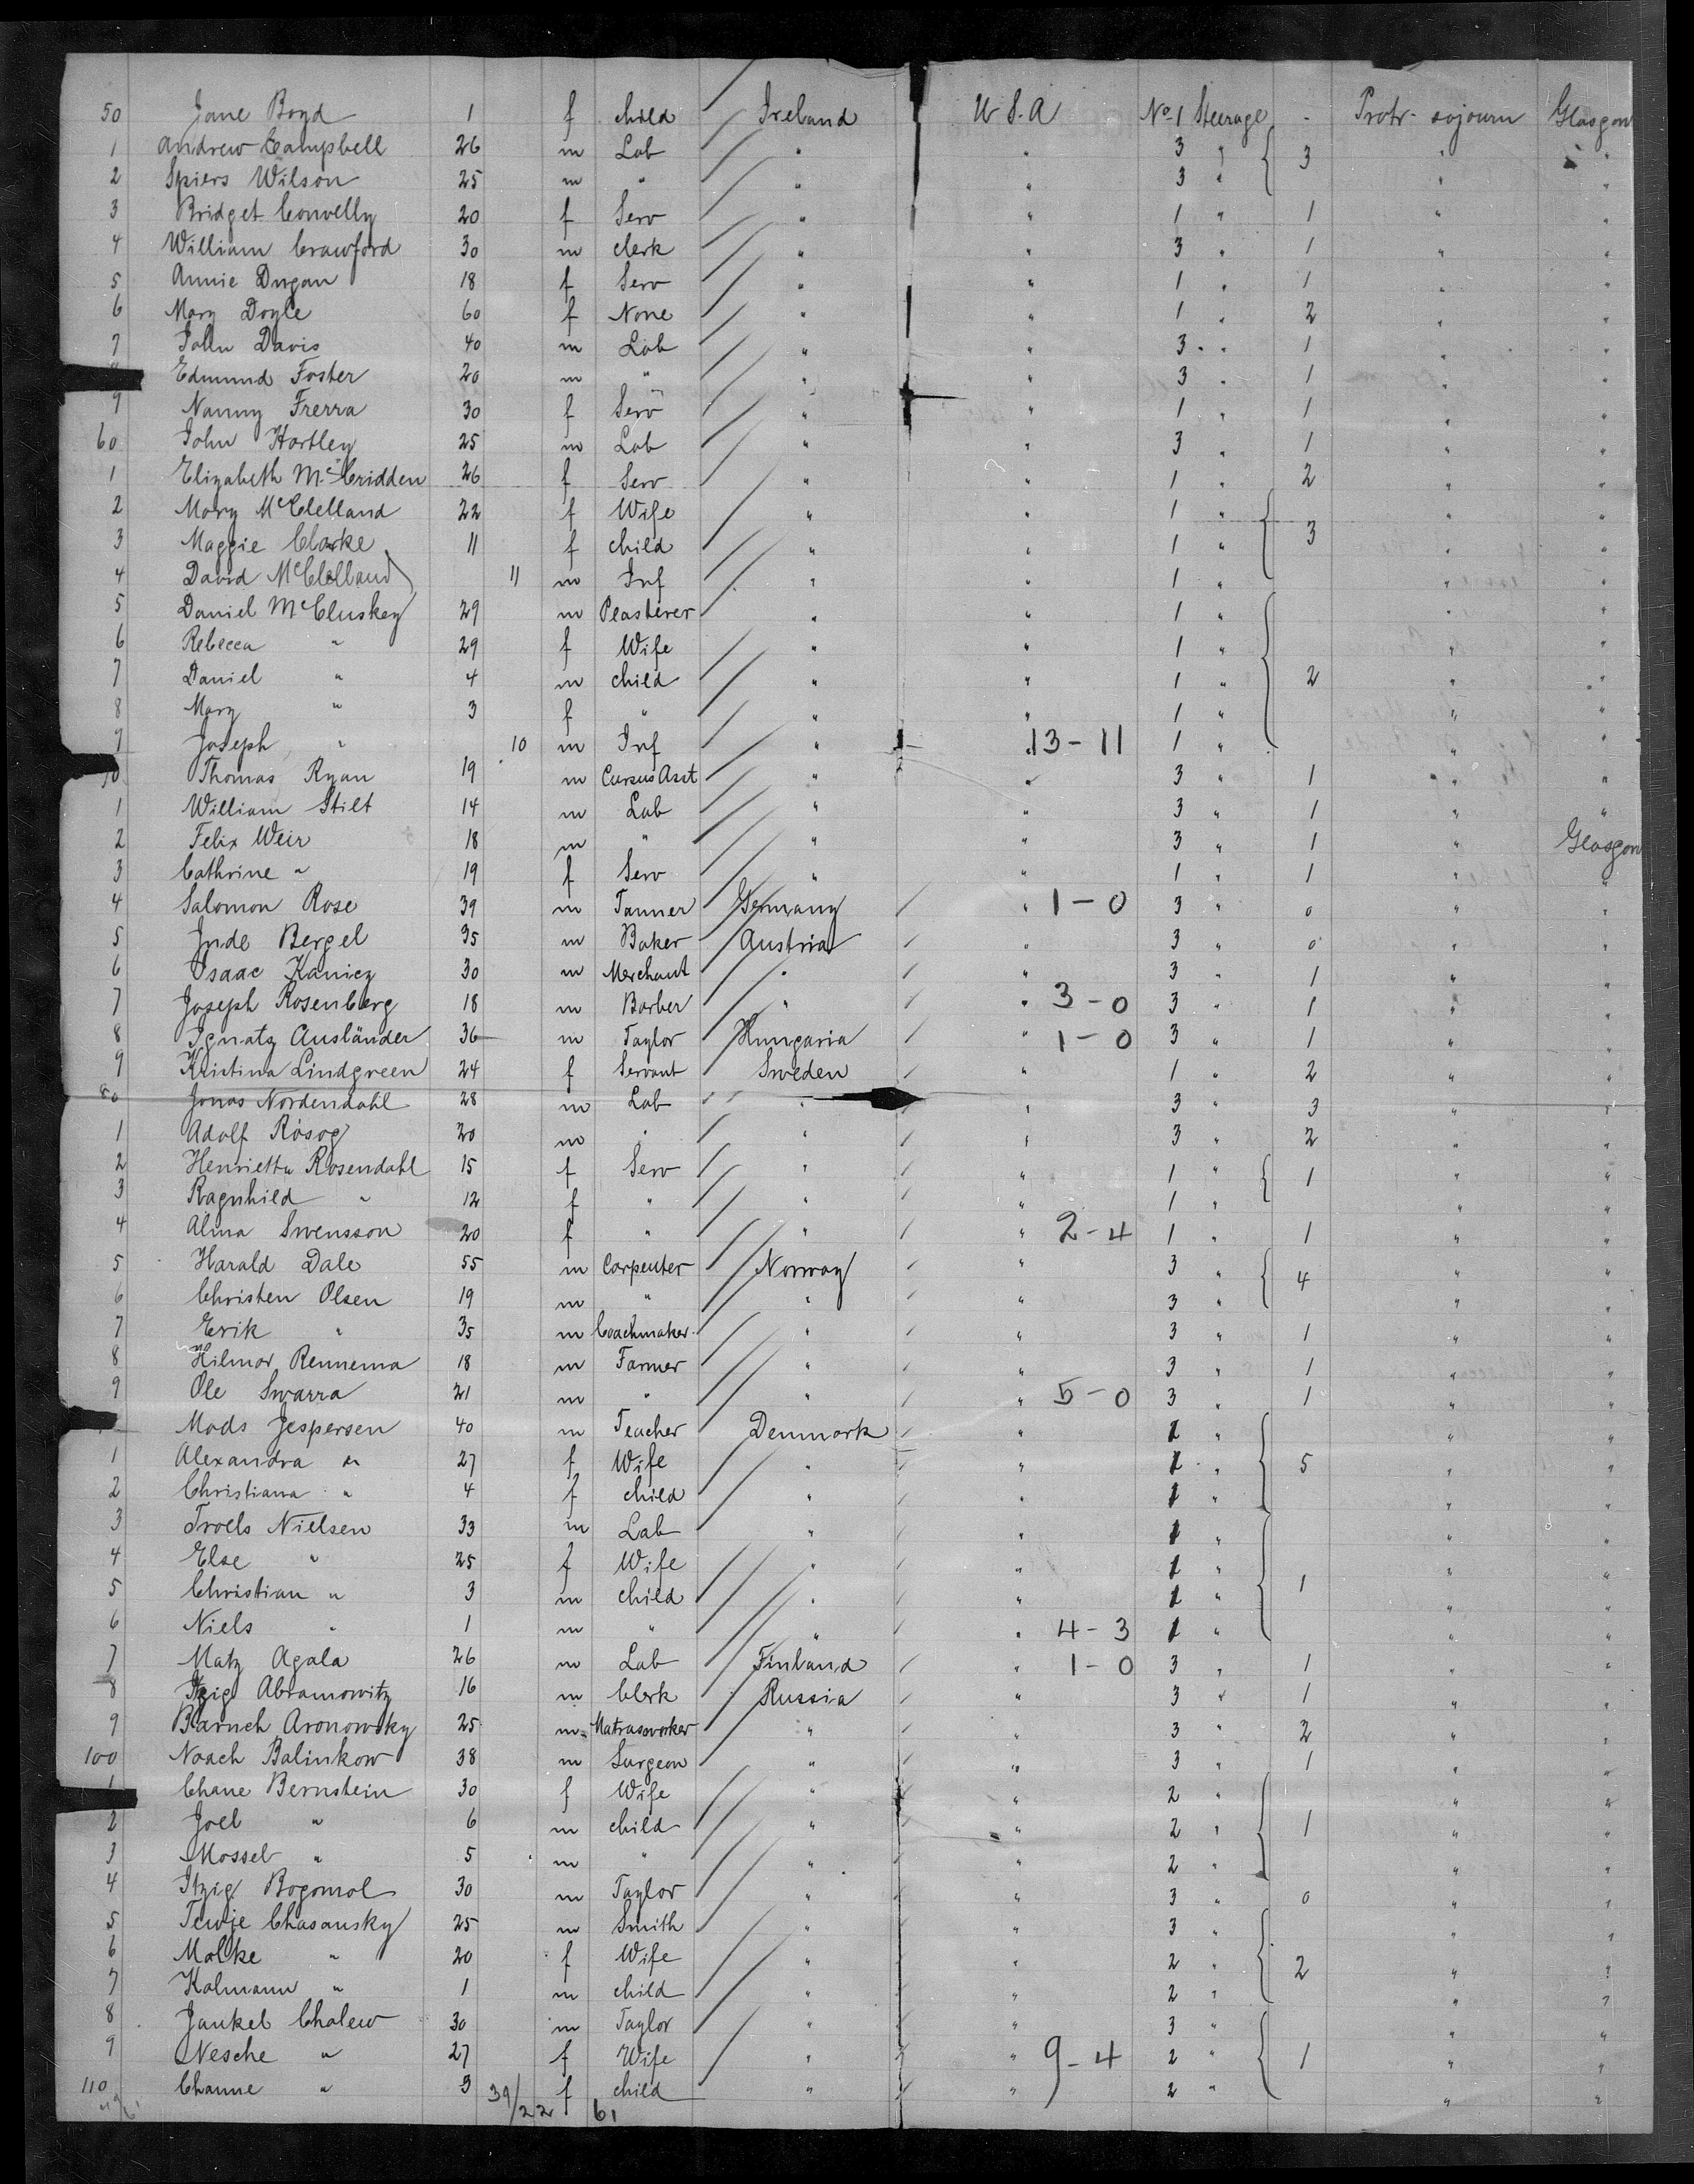 50 Jane Boyd 1 f child Ireland U S. A No 1 Steerage - Protr. sojourn Glasgow
1 Andrew Campbell 26 m Lab " " 3 " 3 " "
2 Spiers Wilson 25 m " " " 3 " " "
3 Bridget Convelly 20 f Serv " " 1 " 1 " "
4 William Crawford 30 m clerk " " 3 " 1 " "
5 Annie Dugan 18 f Serv " " 1 " 1 " "
6 Mary Doyle 60 f None " " 1 " 2 " "
7 John Davis 40 m Lab " " 3 " 1 " "
Edmund Foster 20 m " " " 3 " 1 " "
9 Nanny Frerra 30 f Serv " " 1 " 1 " "
60 John Hartley 25 m Lab " " 3 " 1 " "
1 Elizabeth McCridden 26 f Serv " " 1 " 2 " "
2 Mary McClelland 22 f Wife " " 1 " 3 " "
3 Maggie Clarke 11 f child " " 1 " " "
4 David McClelland 11 m Inf " " 1 " " "
5 Daniel McCluskey 29 m Plasterer " " 1 " " "
6 Rebecca " 29 f Wife " " 1 " " "
7 Daniel " 4 m child " " 1 " 2 " "
8 Mary " 3 f " " " 1 " " "
9 Joseph " 10 m Inf " " 13-11 1 " " "
70 Thomas Ryan 19 m Asst " " 3 " 1 " "
1 William Stilt 14 m Lab " " 3 " 1 " "
2 Felix Weir 18 m " " " 3 " 1 " Glasgow
3 Cathrine " 19 f Serv " " 1 " 1 " "
4 Salomon Rose 39 m Tanner Germany " 1-0 3 " 0 " "
5 Jude Bergel 35 m Baker Austria " 3 " 0 " "
6 Isaac Kanicz 30 m Merchant " " 3 " 1 " "
7 Joseph Rosenberg 18 m Barber " " 3-0 3 " 1 " "
8 Ignatz Ausländer 36 m Taylor Hungaria " 1-0 3 " 1 " "
9 Kristina Lindgreen 24 f Servant Sweden " 1 " 2 " "
80 Jonas Nordendahl 28 m Lab " " 3 " 3 " "
1 Adolf Rosog 20 m " " " 3 " 2 " "
2 Henrietta Rosendahl 15 f Serv " " 1 " 1 " "
3 Ragnhild " 12 f " " " 1 " " "
4 Alma Swensson 20 f " " " 2-4 1 " 1 " "
5 Harald Dale 55 m Carpenter Norway " 3 " 4 " "
6 Christen Olsen 19 m " " " 3 " " "
7 Erik " 35 m Coachmaker " " 3 " 1 " "
8 Hilmar Rennema 18 m Farmer " " 3 " 1 " "
9 Ole Swarra 21 m " " " 5-0 3 " 1 " "
Mads Jespersen 40 m Teacher Denmark " 1 " " "
1 Alexandra " 27 f Wife " " 1 " 5 " "
2 Christiana " 4 f child " " 1 " " "
3 Troels Nielsen 33 m Lab " " 1 " " "
4 Else " 25 f Wife " " 1 " " "
5 Christian " 3 m child " " 1 " 1 " "
6 Niels " 1 m " " " 4-3 1 " " "
7 Matz Agala 26 m Lab Finland " 1-0 3 " 1 " "
8 Itzig Abramowitz 16 m Clerk Russia " 3 " 1 " "
9 Baruch Aronowsky 25 m Matrassworker " " 3 " 2 " "
100 Noach Balinkow 38 m Surgeon " " 3 " 1 " "
1 Chane Bernstein 30 f Wife " " 2 " " "
2 Joel " 6 m child " " 2 " 1 " "
3 Mossel " 5 m " " " 2 " " "
4 Itzig Bogomol 30 m Taylor " " 3 " 0 " "
5 Tewje Chasansky 25 m Smith " " 3 " " "
6 Malke " 20 f Wife " " 2 " 2 " "
7 Kalmann " 1 m child " " 2 " " "
8 Jankel Chalew 30 m Taylor " " 3 " " "
9 Nesche " 27 f Wife " " 9-4 2 " 1 " "
110 Channe " 3 f child " " 2 " " "
39/22 61